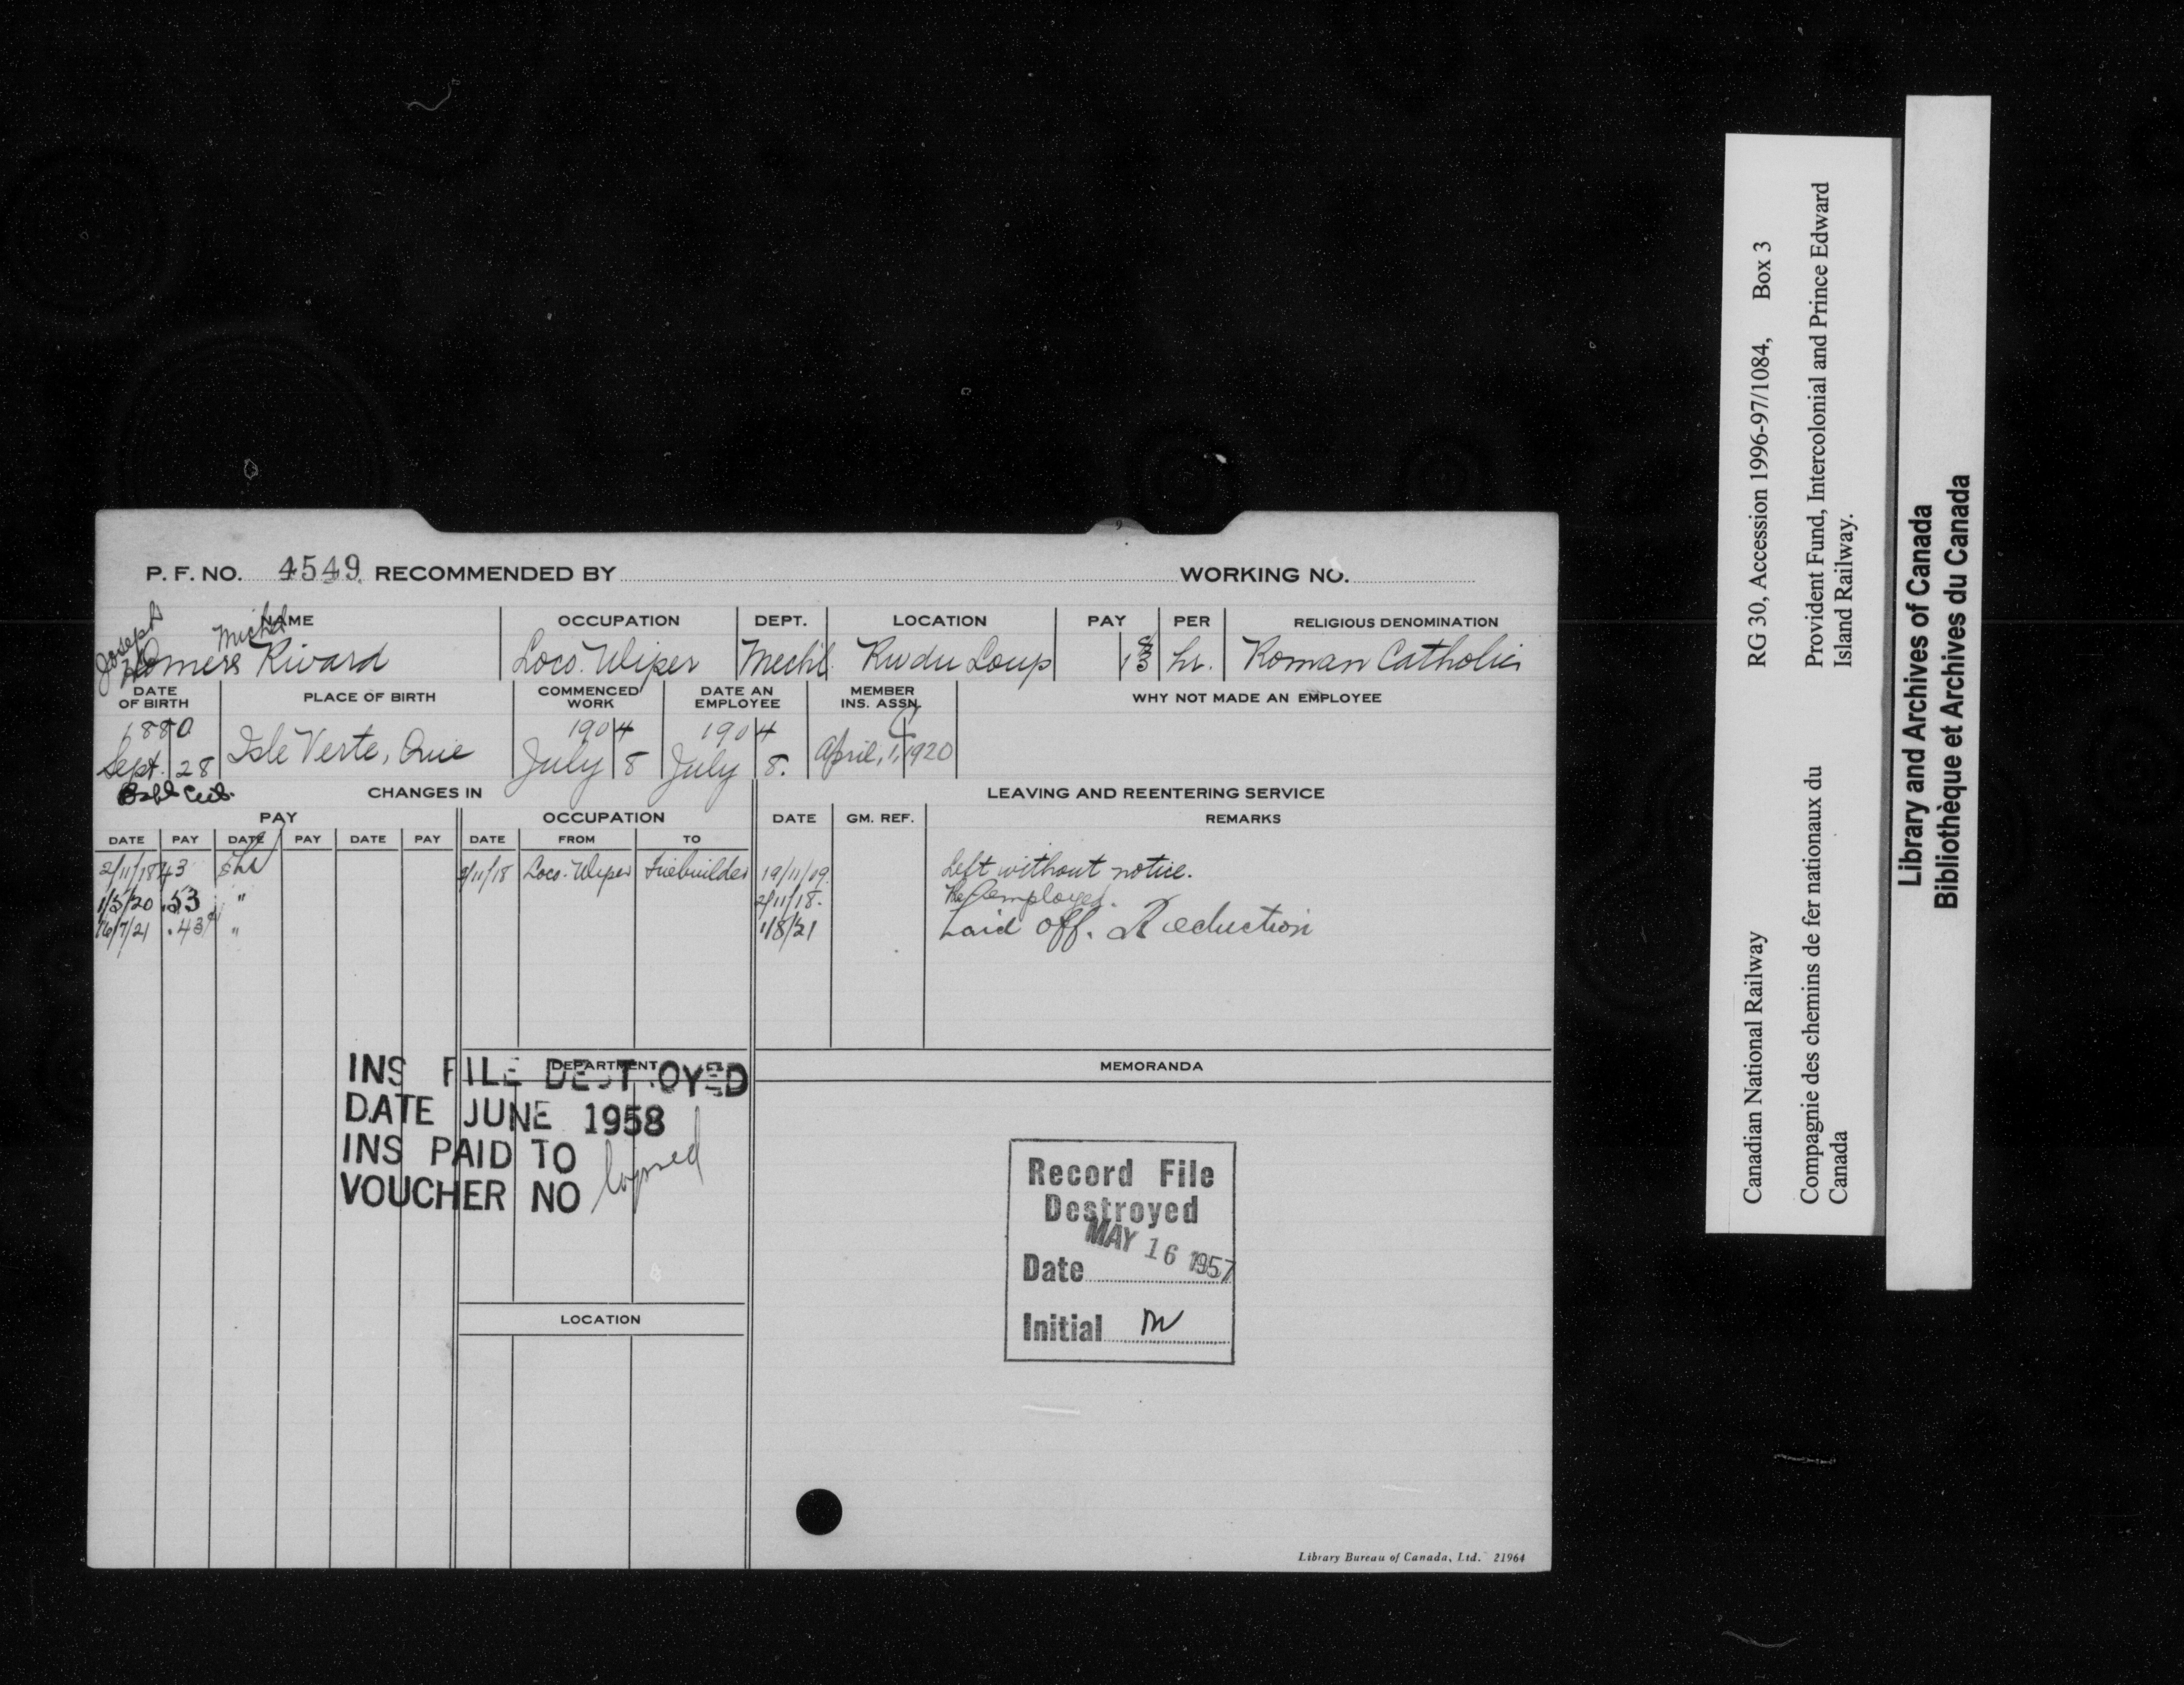 P. F. NO. 4549 RECOMMENDED BY WORKING NO.
NAME OCCUPATION DEPT. LOCATION PAY PER RELIGIOUS DENOMINATION
Joseph Michel
Rivard Loco. Wiper Mech'l Riv du Loup hr. Roman Catholic
DATE OF BIRTH PLACE OF BIRTH COMMENCED WORK DATE AN EMPLOYEE MEMBER INS. ASSN. WHY NOT MADE AN EMPLOYEE
1880 1904 1904
Sept. 28 Isle Verte, Que July 8 July 8. April, 1, 1920
CHANGES IN LEAVING AND REENTERING SERVICE
PAY OCCUPATION DATE GM. REF. REMARKS
DATE PAY DATE PAY DATE PAY DATE FROM TO
2/11/18 43 2/11/18 Loco. Wiper Firebuilder 19/11/19 Left without notice.
1/5/20 .53 " 2/11/18. Re employed.
16/7/21 .43 " 1/8/21 Laid off. Reduction
DEPARTMENT MEMORANDA
INS FILE DESTROYED
DATE JUNE 1958
INS PAID TO
VOUCHER NO lapsed
Record File
Destroyed
Date MAY 16 1957
Initial
LOCATION
Library Bureau of Canada, Ltd. 21964
Canadian National Railway RG 30, Accession 1996-97/1084, Box 3
Compagnie des chemins de fer nationaux du Provident Fund, Intercolonial and Prince Edward
Canada Island Railway.
Library and Archives of Canada
Bibliothèque et Archives du Canada